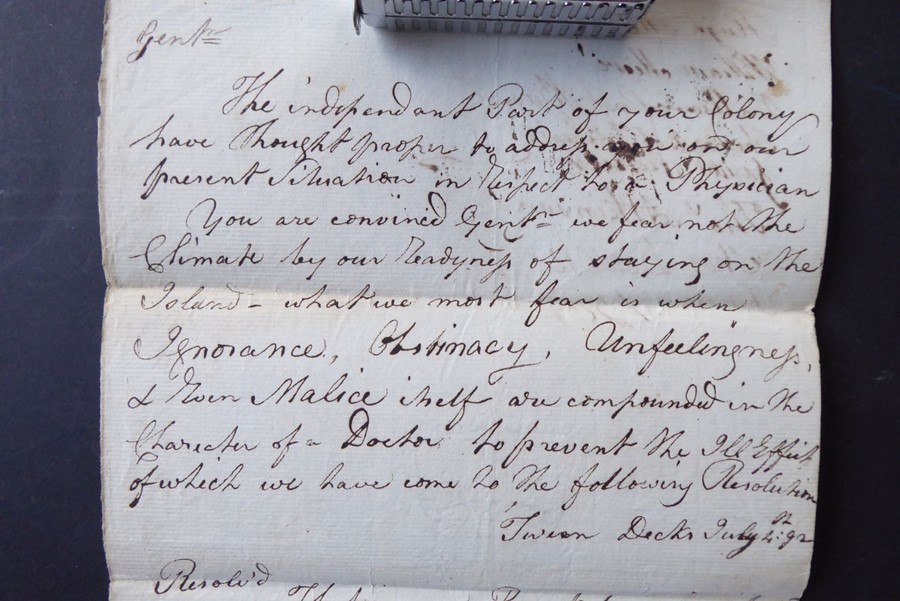 Gentn
The independant Part of your Colony
have thought proper to address you on our
present Situation in respect to a Physician
You are convinced Gentn we fear not the
Climate by our Readyness of staying on the
Island - what we most fear is when
Ignorance, Obstinacy, Unfeelingness,
& Even Malice itself are compounded in the
Character of a Doctor to prevent the Ill Effect
of which we have come to the following Resolution
Tween Decks July 92
Resolv'd